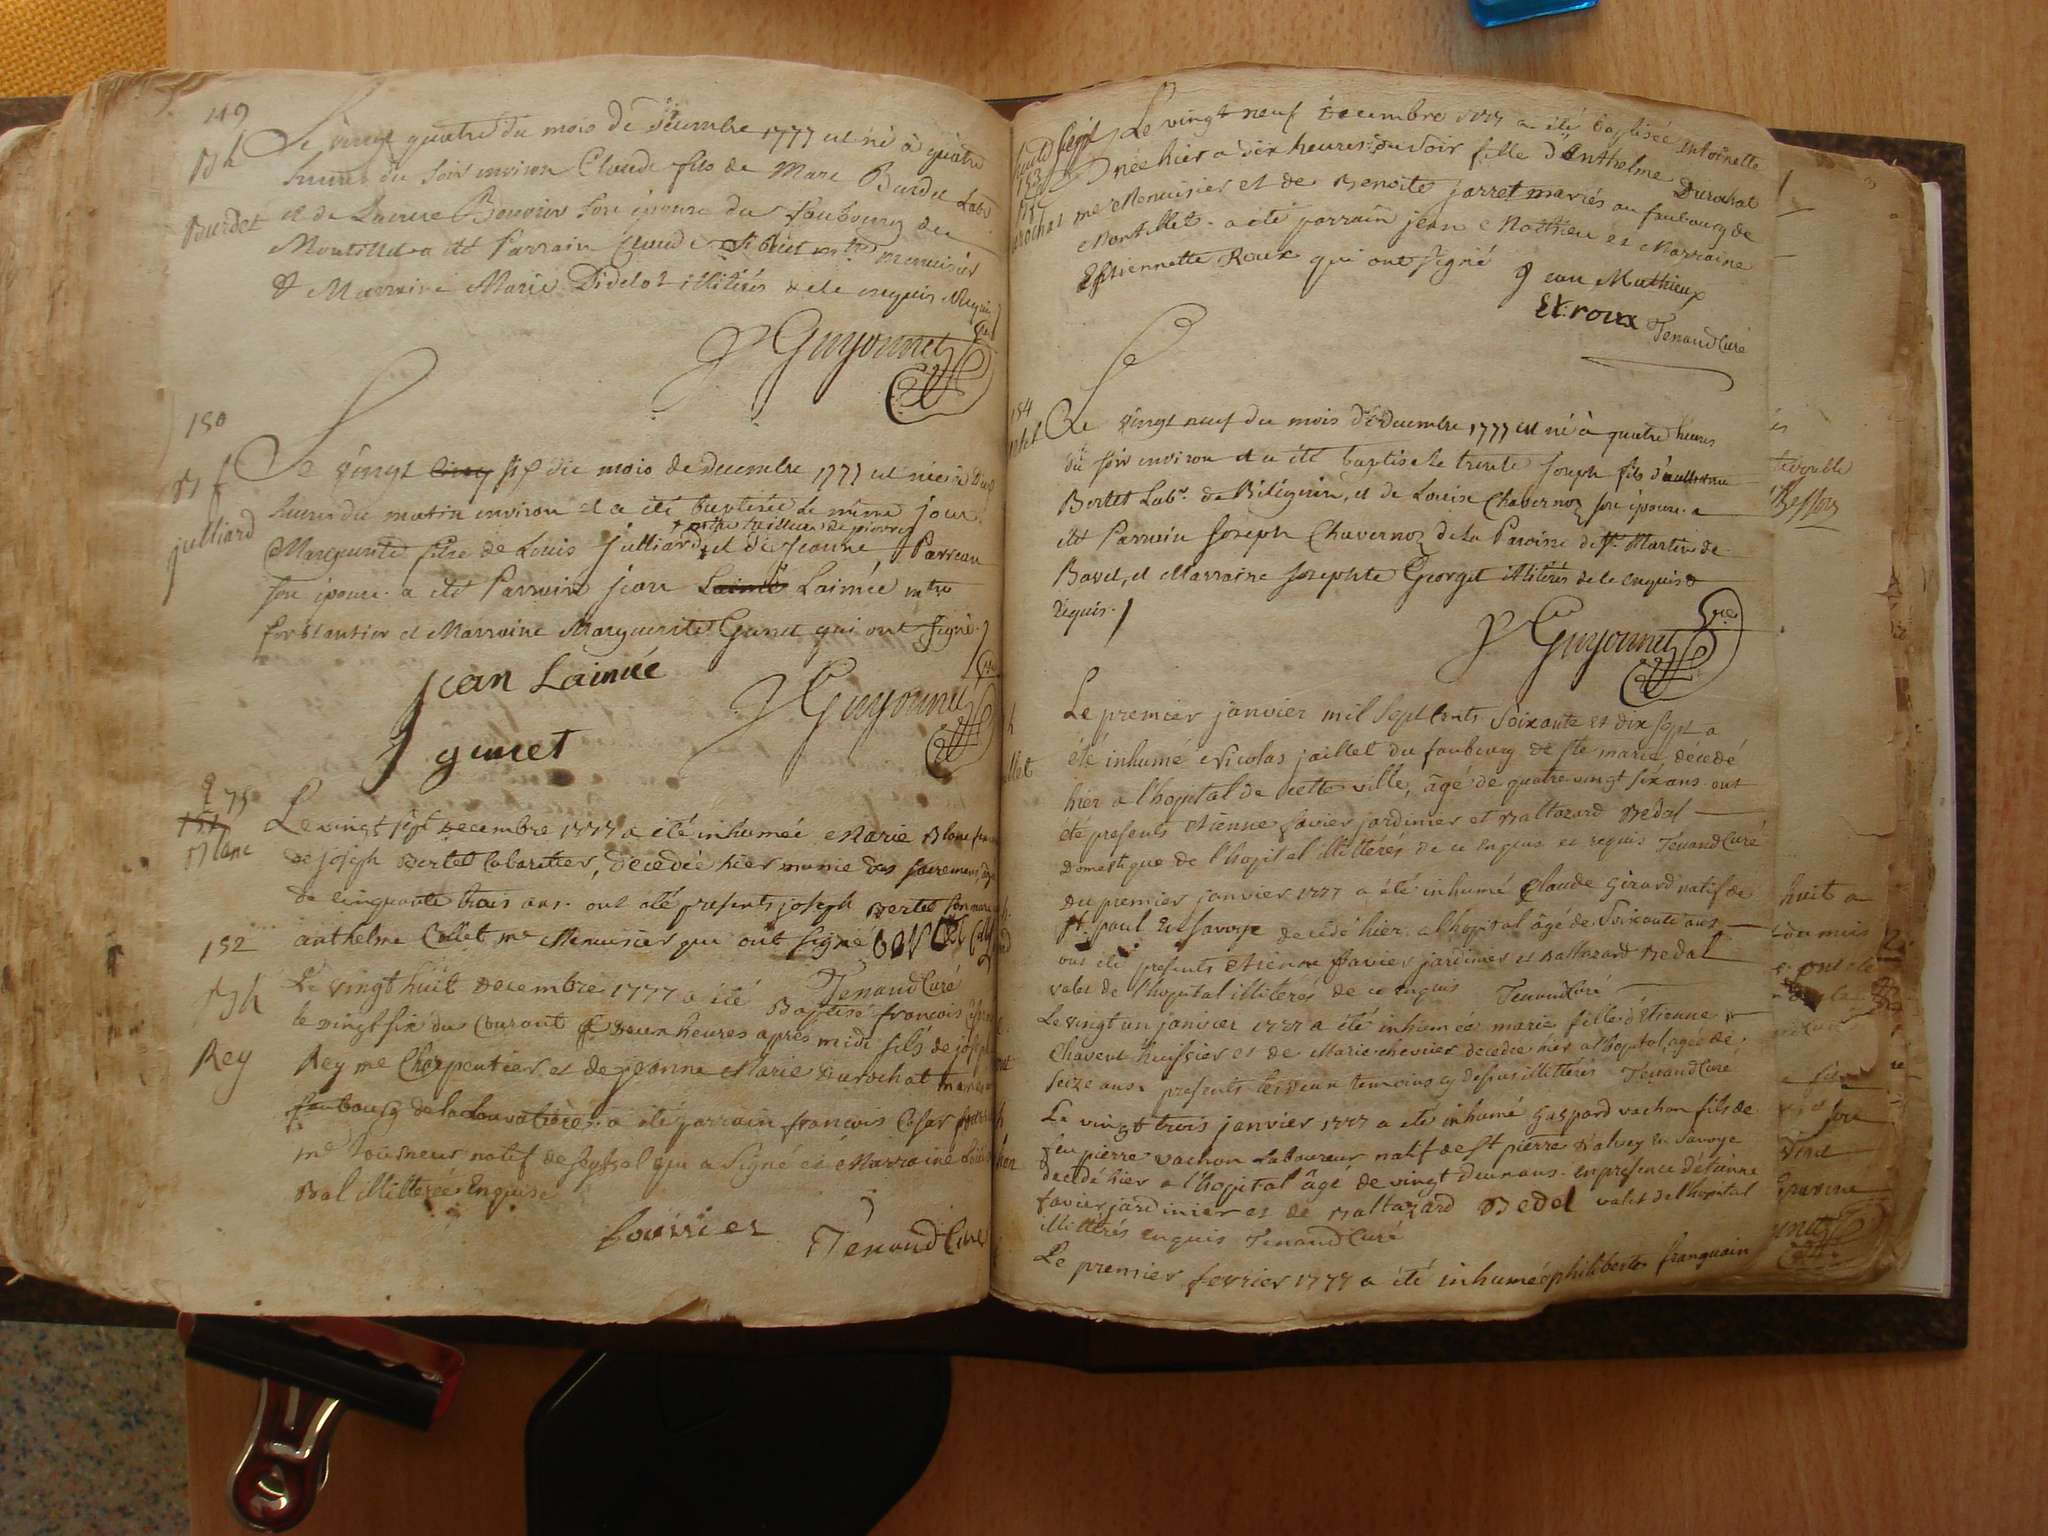 149
Bh
Burdet
Le vingt quatre du mois de Decembre 1777 est né à quatre
heures du soir environ Claude fils de Marc Burdet Labr
et de Bouvier son épouse du faubourg du
a été Parrain Claude menuisier
& Marraine Marie Didelot illiterés de ce enquis & requis
Guyonnet Vic
150
B f
julliard
Le vingt cinq six du mois de decembre 1777 est née à
heures du matin environ et a été baptisée le même jour
mtre tailleur de pierres
Marguerite fille de Louis Julliard, et de Jeanne Parreau
son épouse. a été Parrain jean Lainée Lainée mtre
et Marraine Marguerite Gunet qui ont signé.
jean Lainée
Guyonnet Vic
J gunet
75
151
Blanc
Le vingt sept Decembre 1777 a été inhumée Marie Blanc
de joseph Bertet Cabaretier, decedée hier munie des sacremens,
de cinquante trois ans. ont été presents joseph Bertet son mari
152
anthelme Collet me Menuisier qui ont signé
Tenand Curé
Bh
Le vingt huit Decembre 1777 a été Baptisé francois
le vingt six du Courant a deux heures après midi fils de joseph
Rey
Rey me Charpentier, et de jeanne Marie Durochat mariés
faubourg de la Louvatière. a été parrain francois Cesar
me Tourneur natif de seyssel qui a signé et Marraine
Bal illitterée Enquise
fournier Tenand Curé
153
Le vingt neuf Decembre 1777 a été baptisée Antoinette
née hier a dix heures du soir fille d'Anthelme Durochat
me Menuisier et de Benoite jarret mariés au faubourg de
Montillet. a été parrain jean Mathieu et Marraine
Estiennette Roux qui ont signé Jean Mathieux
Et. roux Tenand Curé
154
Le vingt neuf du mois de Decembre 1777 est né à quatre heures
du soir environ et a été baptisé le trente Joseph fils d'anthelme
Bertet Labr. de Bilignin, et de Louise Chavernoz son épouse. a
été Parrain Joseph Chavernoz de la Paroisse de St. Martin de
Bavel, et Marraine Josephte Georget illiterés de ce enquis &
requis.
Guyonnet Vic
Le premier janvier mil sept cents soixante et dix sept a
été inhumé Nicolas jaillet du faubourg de ste marie, décédé
hier a l'hopital de cette ville, âgé de quatre vingt six ans. ont
été presents etienne favier jardinier et Baltazard Bedal
Domestique de l'hopital illitterés de ce enquis et requis Tenand Curé
Du premier janvier 1777 a été inhumé Claude Girard natif de
st. paul En Savoye decedé hier a l'hopital âgé de soixante ans
ont été presents etienne favier jardinier et Baltazard Bedal
valet de l'hopital illiterés de ce enquis Tenand Curé
Le vingt un janvier 1777 a été inhumée marie fille d'Etienne
Chavent huissier et de Marie chevrier decedée hier a l'hopital, agée de
seize ans. presents les deux temoins cy dessus illitterés Tenand Curé
Le vingt trois janvier 1777 a été inhumé Gaspard vachon fils de
feu pierre vachon Laboureur natif de st pierre d'alvey En Savoye
decedé hier a l'hopital âgé de vingt deux ans. en presence d'étienne
favier jardinier et de Baltazard Bedel valet de l'hopital
illitterés enquis Tenand Curé
Le premier fevrier 1777 a été inhumée philiberte franquain
huit a